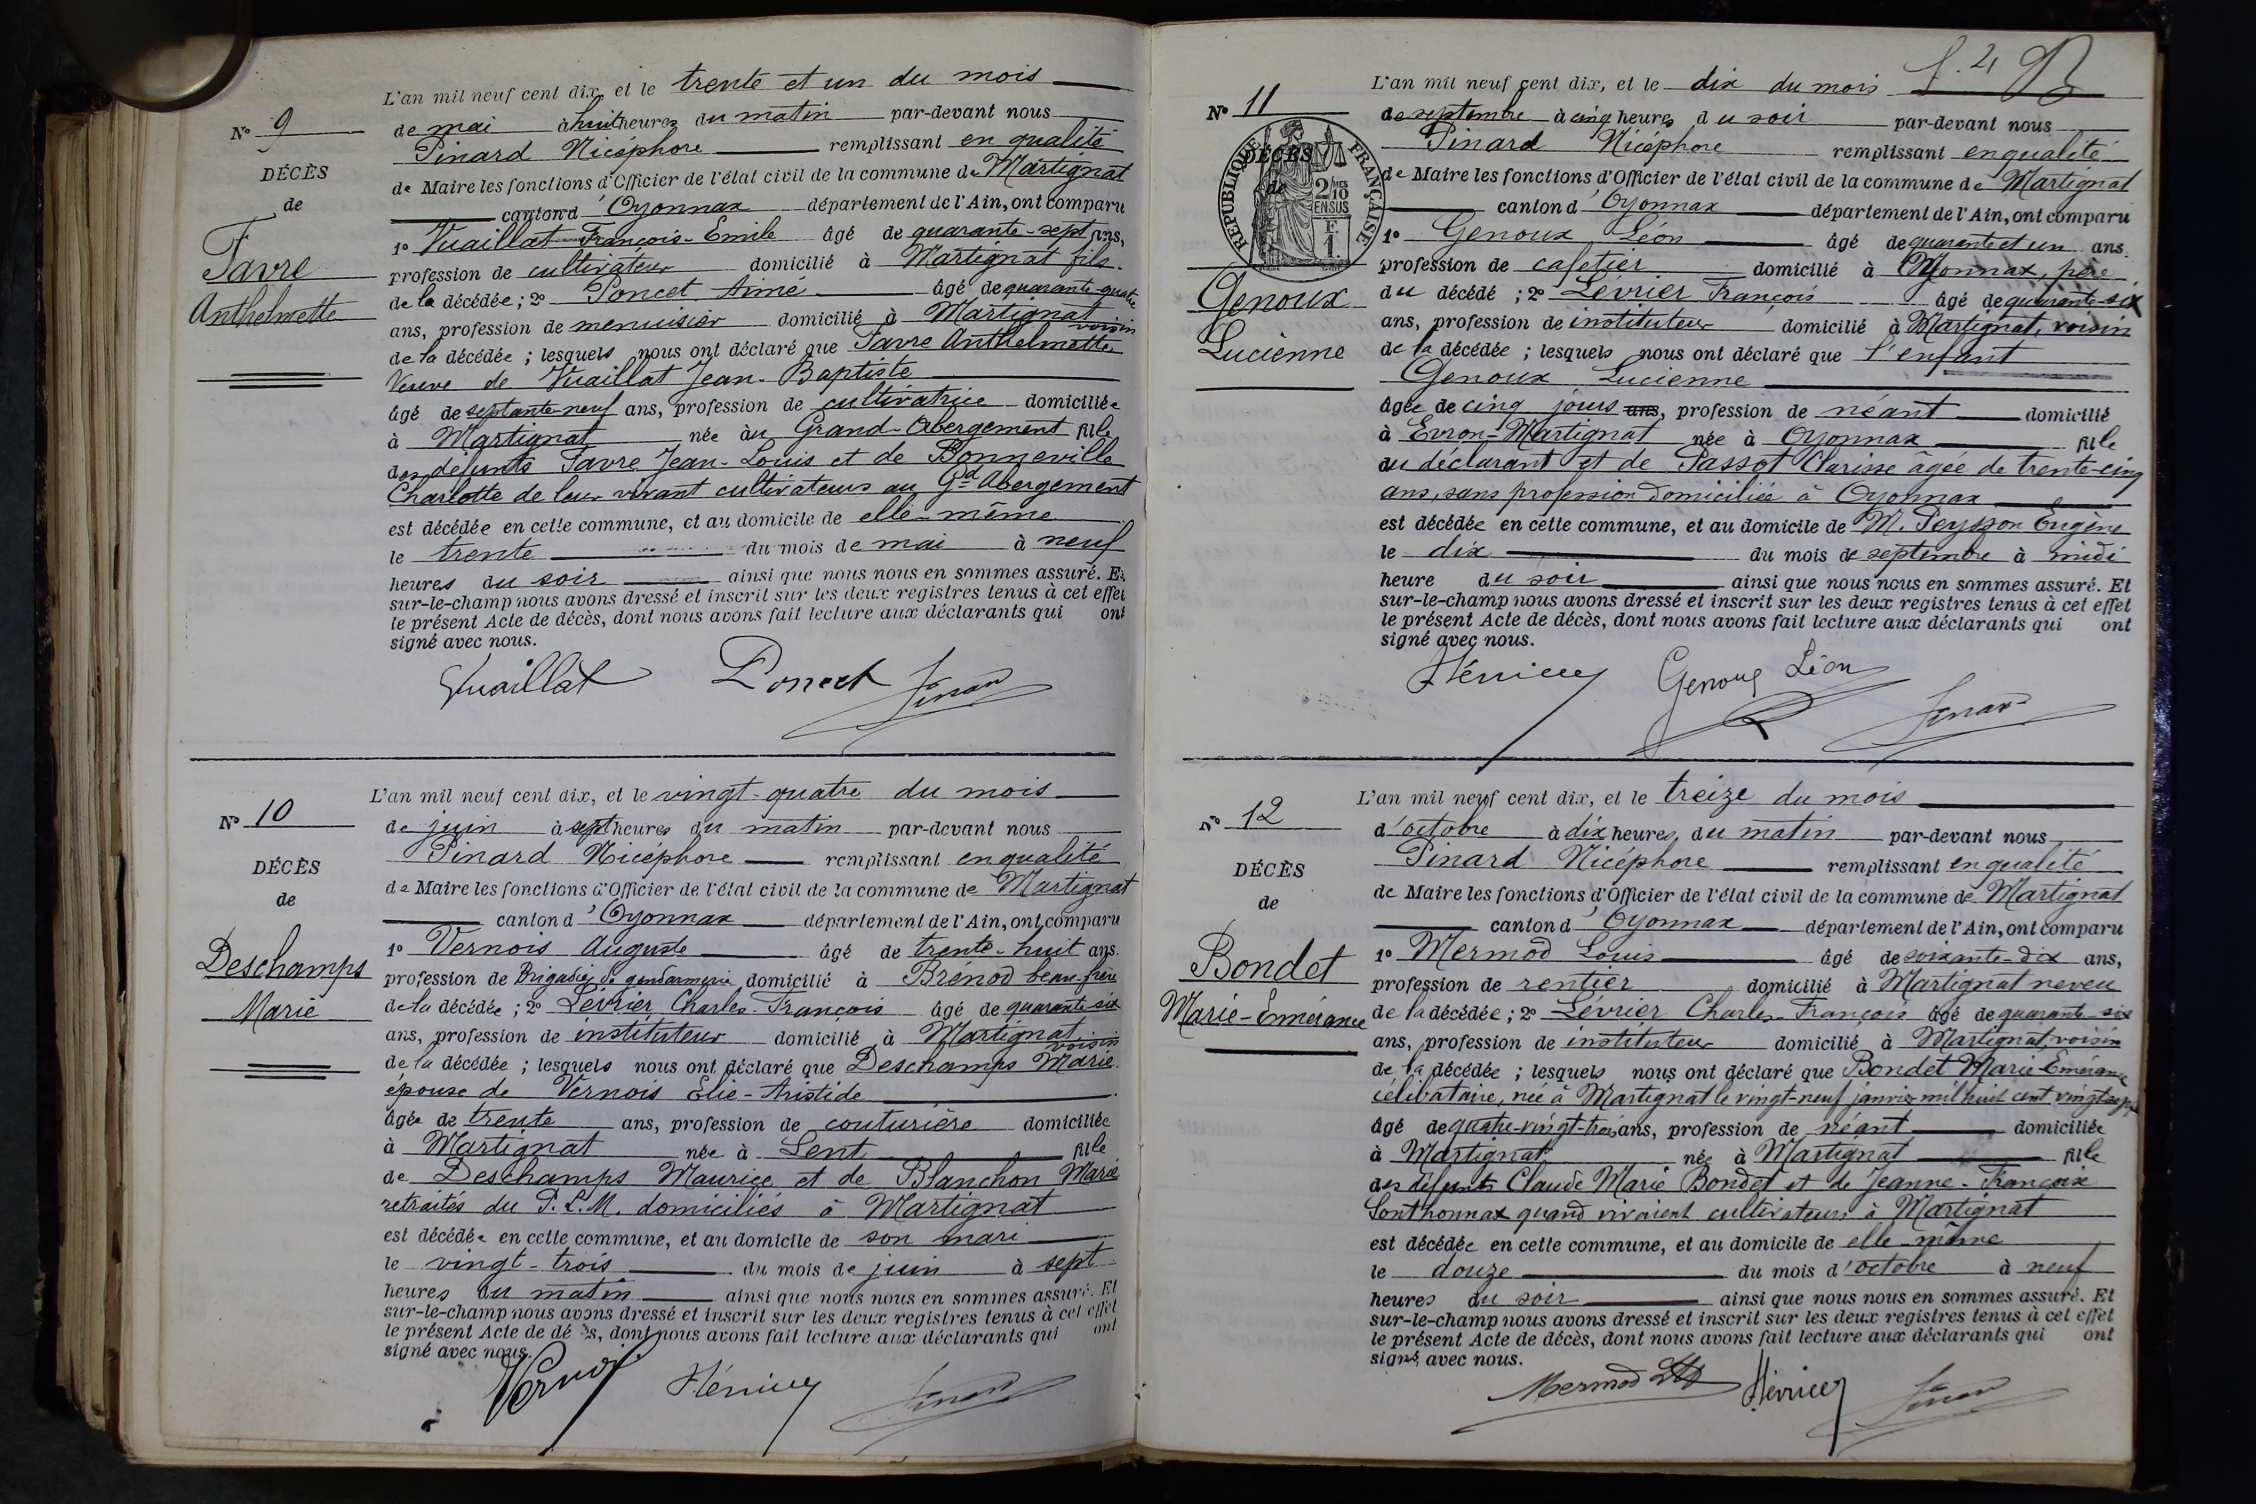 L'an mil neuf cent dix, et le trente et un du mois
N° 9
de mai à huit heures du matin par-devant nous
Pinard Nicéphore remplissant en qualité
DÉCÈS
de Maire les fonctions d'Officier de l'état civil de la commune de Martignat
de
canton d'Oyonnax département de l'Ain, ont comparu
1° Vuaillat François-Emile âgé de quarante-sept ans,
Favre
profession de cultivateur domicilié à Martignat fils
Anthelmette
de la décédée ; 2° Poncet Aimé âgé de quarante-quatre
ans, profession de menuisier domicilié à Martignat voisin
de la décédée ; lesquels nous ont déclaré que Favre Anthelmette
Veuve de Vuaillat Jean-Baptiste
âgé de septante-neuf ans, profession de cultivatrice domiciliée
à Martignat née au Grand-Abergement fille
des défunts Favre Jean-Louis et de Bonneville
Charlotte de leur vivant cultivateurs au Gd Abergement
est décédée en cette commune, et au domicile de elle-même
le trente du mois de mai à neuf
heures du soir ainsi que nous nous en sommes assuré. Et
sur-le-champ nous avons dressé et inscrit sur les deux registres tenus à cet effet
le présent Acte de décès, dont nous avons fait lecture aux déclarants qui ont
signé avec nous.
Vuaillat Poncet Pinard
L'an mil neuf cent dix, et le vingt-quatre du mois
N° 10
de juin à sept heures du matin par-devant nous
Pinard Nicéphore remplissant en qualité
DÉCÈS
de Maire les fonctions d'Officier de l'état civil de la commune de Martignat
de
canton d'Oyonnax département de l'Ain, ont comparu
1° Vernois Auguste âgé de trente-huit ans.
Deschamps
profession de Brigadier de gendarmerie domicilié à Brénod beau-frère
Marie
de la décédée ; 2° Lévrier Charles-François âgé de quarante-six
ans, profession de instituteur domicilié à Martignat voisin
de la décédée ; lesquels nous ont déclaré que Deschamps Marie
épouse de Vernois Elie-Aristide
âgée de trente ans, profession de couturière domiciliée
à Martignat née à Lent fille
de Deschamps Maurice et de Blanchon Marie
retraités du P.L.M. domiciliés à Martignat
est décédée en cette commune, et au domicile de son mari
le vingt-trois du mois de juin à sept
heures du matin ainsi que nous nous en sommes assuré. Et
sur-le-champ nous avons dressé et inscrit sur les deux registres tenus à cet effet
le présent Acte de décès, dont nous avons fait lecture aux déclarants qui ont
signé avec nous.
Vernois Lévrier Pinard
f. 4
L'an mil neuf cent dix, et le dix du mois
N° 11
de septembre à cinq heures du soir par-devant nous
Pinard Nicéphore remplissant en qualité
DÉCÈS
de Maire les fonctions d'Officier de l'état civil de la commune de Martignat
de
RÉPUBLIQUE FRANÇAISE
2/10 MES
EN SUS
F.
1.
canton d'Oyonnax département de l'Ain, ont comparu
1° Genoux Léon âgé de quarante et un ans.
profession de cafetier domicilié à Oyonnax, père
Genoux
du décédé ; 2° Lévrier François âgé de quarante-six
ans, profession de instituteur domicilié à Martignat, voisin
Lucienne
de la décédée ; lesquels nous ont déclaré que l'enfant
Genoux Lucienne
âgée de cinq jours ans, profession de néant domicilié
à Evron-Martignat née à Oyonnax fille
du déclarant et de Passot Clarisse âgée de trente-cinq
ans, sans profession domiciliée à Oyonnax
est décédée en cette commune, et au domicile de M. Peysson Eugène
le dix du mois de septembre à midi
heure du soir ainsi que nous nous en sommes assuré. Et
sur-le-champ nous avons dressé et inscrit sur les deux registres tenus à cet effet
le présent Acte de décès, dont nous avons fait lecture aux déclarants qui ont
signé avec nous.
Lévrier Genoux Léon Pinard
L'an mil neuf cent dix, et le treize du mois
N° 12
d'octobre à dix heures du matin par-devant nous
Pinard Nicéphore remplissant en qualité
DÉCÈS
de Maire les fonctions d'Officier de l'état civil de la commune de Martignat
de
canton d'Oyonnax département de l'Ain, ont comparu
1° Mermod Louis âgé de soixante-dix ans,
Bondet
profession de rentier domicilié à Martignat neveu
Marie-Emmérance
de la décédée ; 2° Lévrier Charles-François âgé de quarante-six
ans, profession de instituteur domicilié à Martignat, voisin
de la décédée ; lesquels nous ont déclaré que Bondet Marie-Emérance
célibataire, née à Martignat le vingt-neuf janvier mil huit cent vingt-sept
âgé de quatre-vingt-trois ans, profession de néant domiciliée
à Martignat née à Martignat fille
des défunts Claude Marie Bondet et de Jeanne-Françoise
Sonthonnax quand vivaient cultivateurs à Martignat
est décédée en cette commune, et au domicile de elle-même
le douze du mois d'octobre à neuf
heures du soir ainsi que nous nous en sommes assuré. Et
sur-le-champ nous avons dressé et inscrit sur les deux registres tenus à cet effet
le présent Acte de décès, dont nous avons fait lecture aux déclarants qui ont
signé avec nous.
Mermod Lévrier Pinard